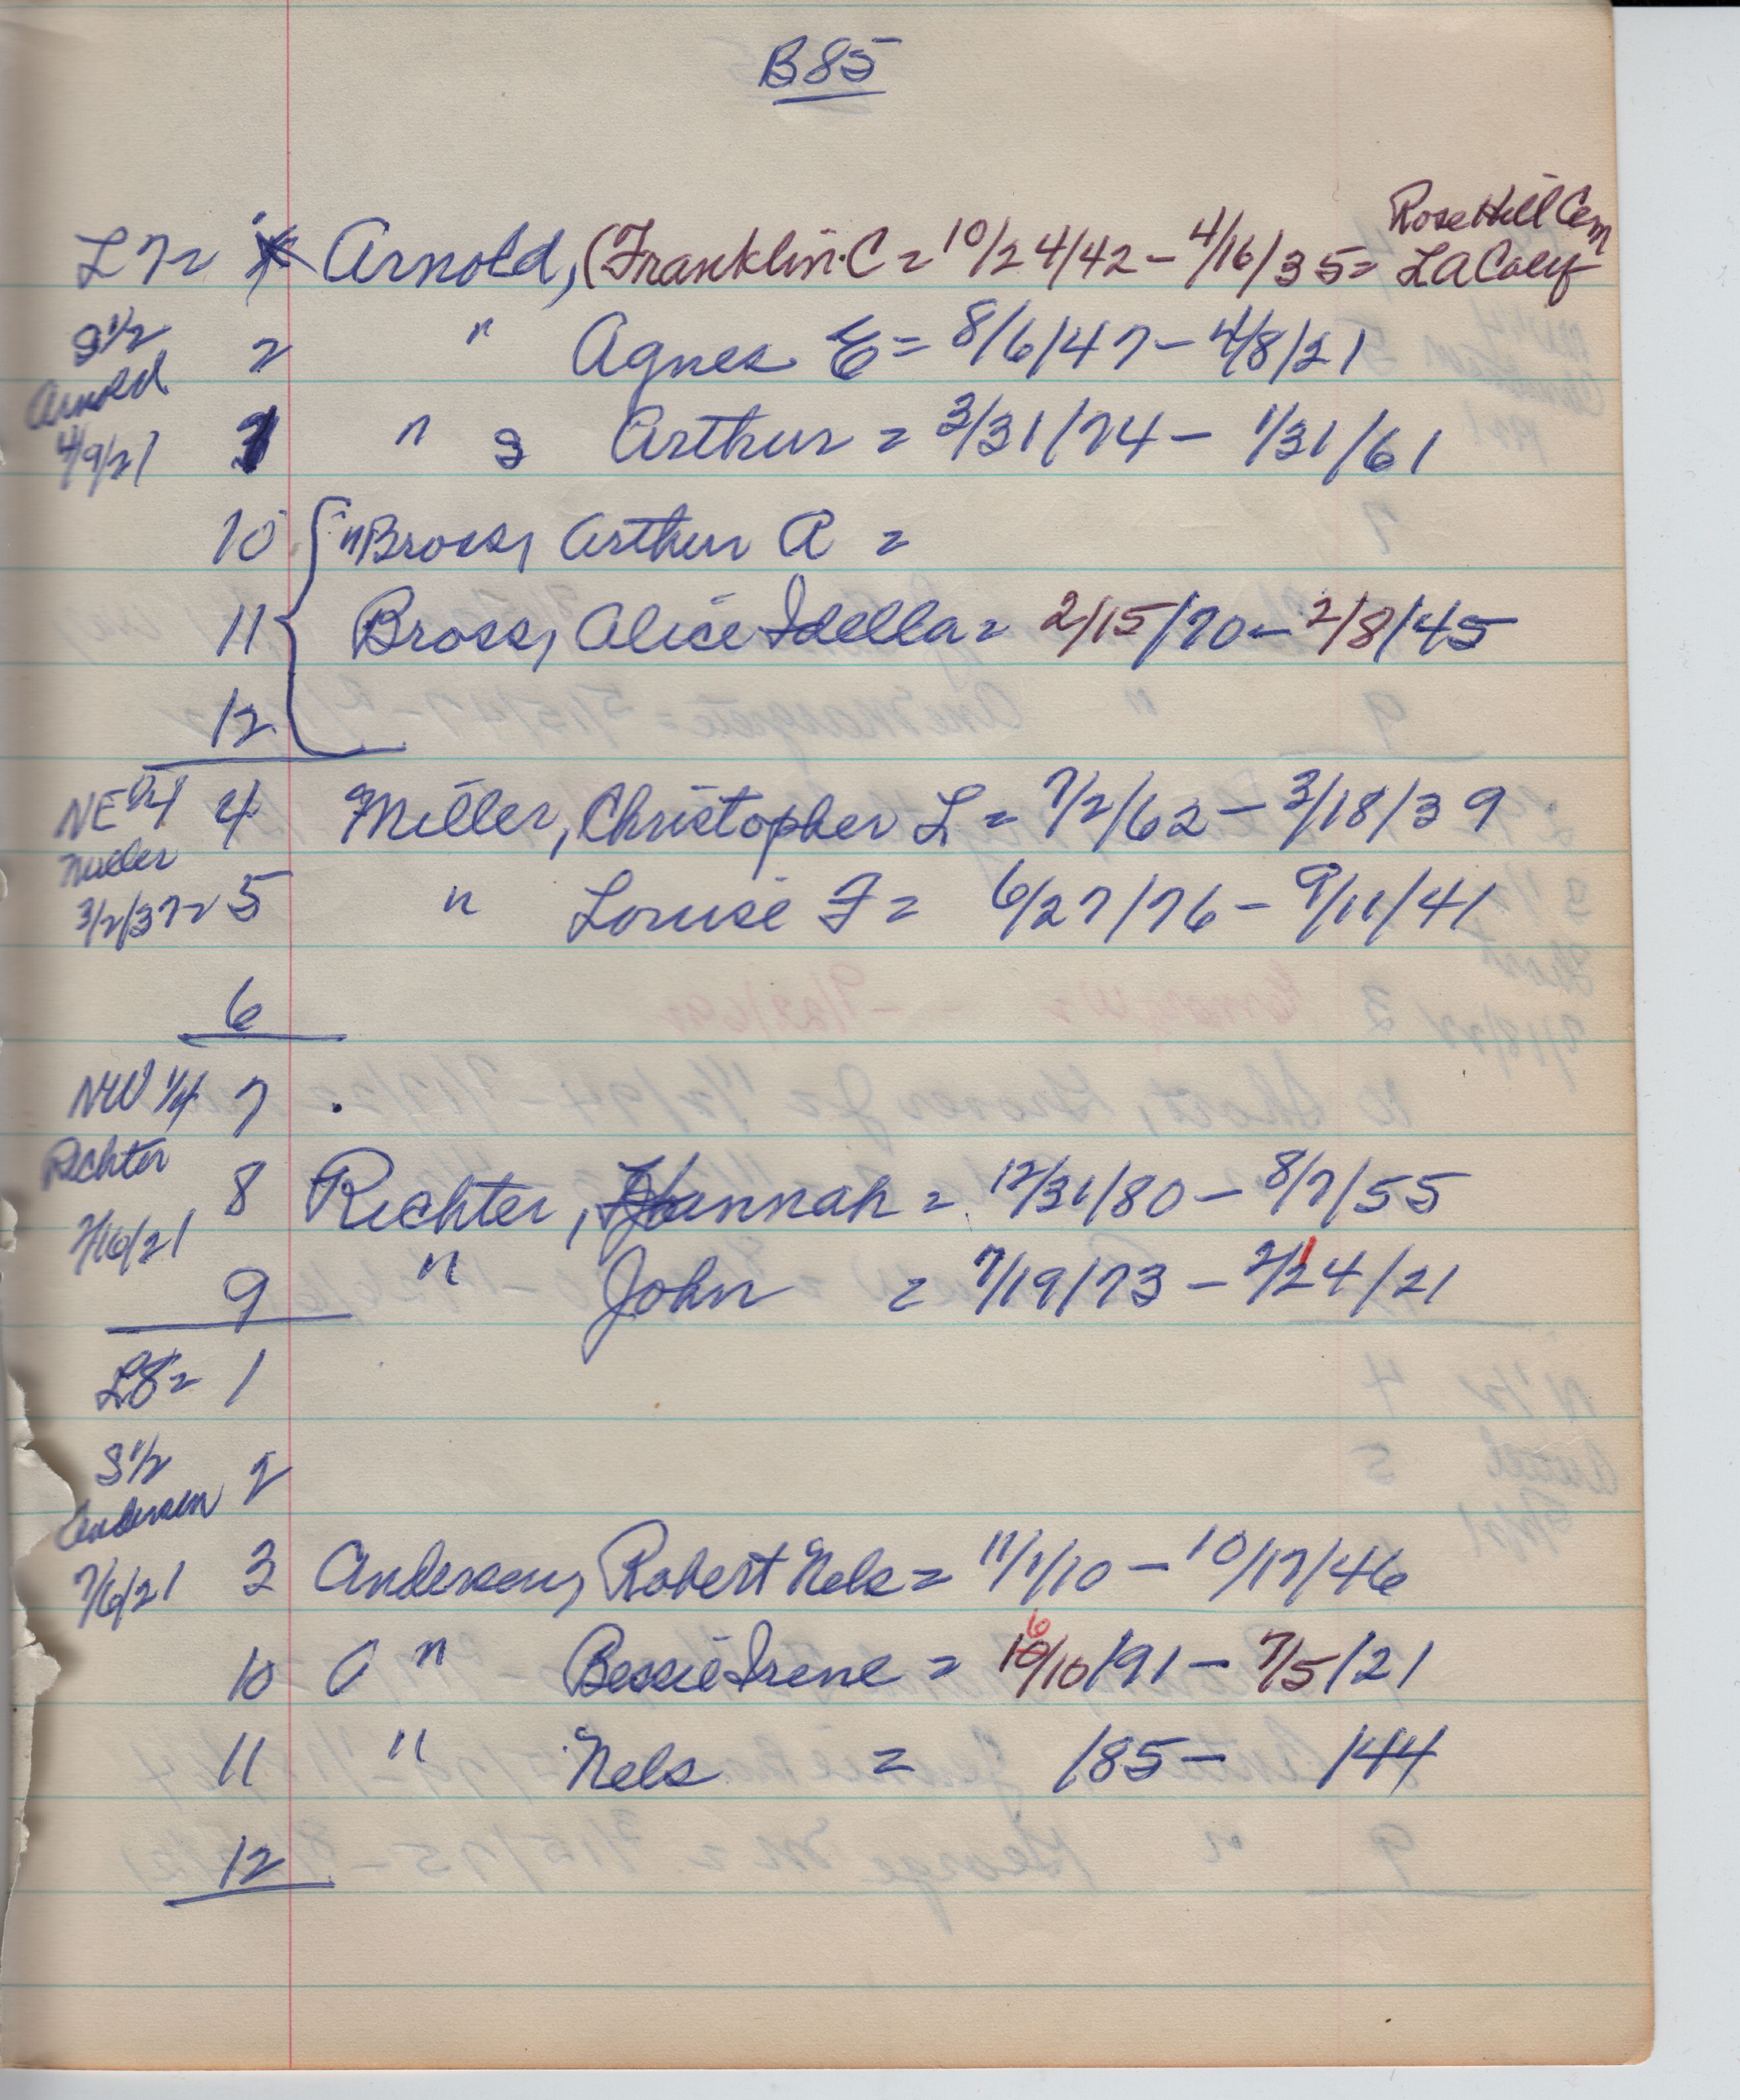 B85
Rose Hill Cem
L7= Arnold, (Franklin C = 10/24/42 - 4/16/35 = LA Calif
S 1/2 2 " Agnes E = 8/6/47 - 4/8/21
Arnold
4/9/21 3 " S Arthur = 3/31/74 - 1/31/61
10 " Bross, Arthur A =
11 Bross, Alice Idella = 2/15/70 - 2/8/45
12
NE 1/4 4 Miller, Christopher L = 7/2/62 - 3/18/39
Miller
3/2/37 = 5 " Louise F = 6/27/76 - 9/11/41
6
NW 1/4 7 .
Richter
8 Richter, Hannah = 12/31/80 - 8/7/55
2/16/21
9 " John = 7/19/73 - 2/14/21
L8 = 1
S 1/2 2
Andersen
7/6/21 3 Andersen, Robert Nels = 11/1/10 - 10/17/46
6
10 " Bessie Irene = 10/10/91 - 7/5/21
11 " Nels = /85 - /44
12